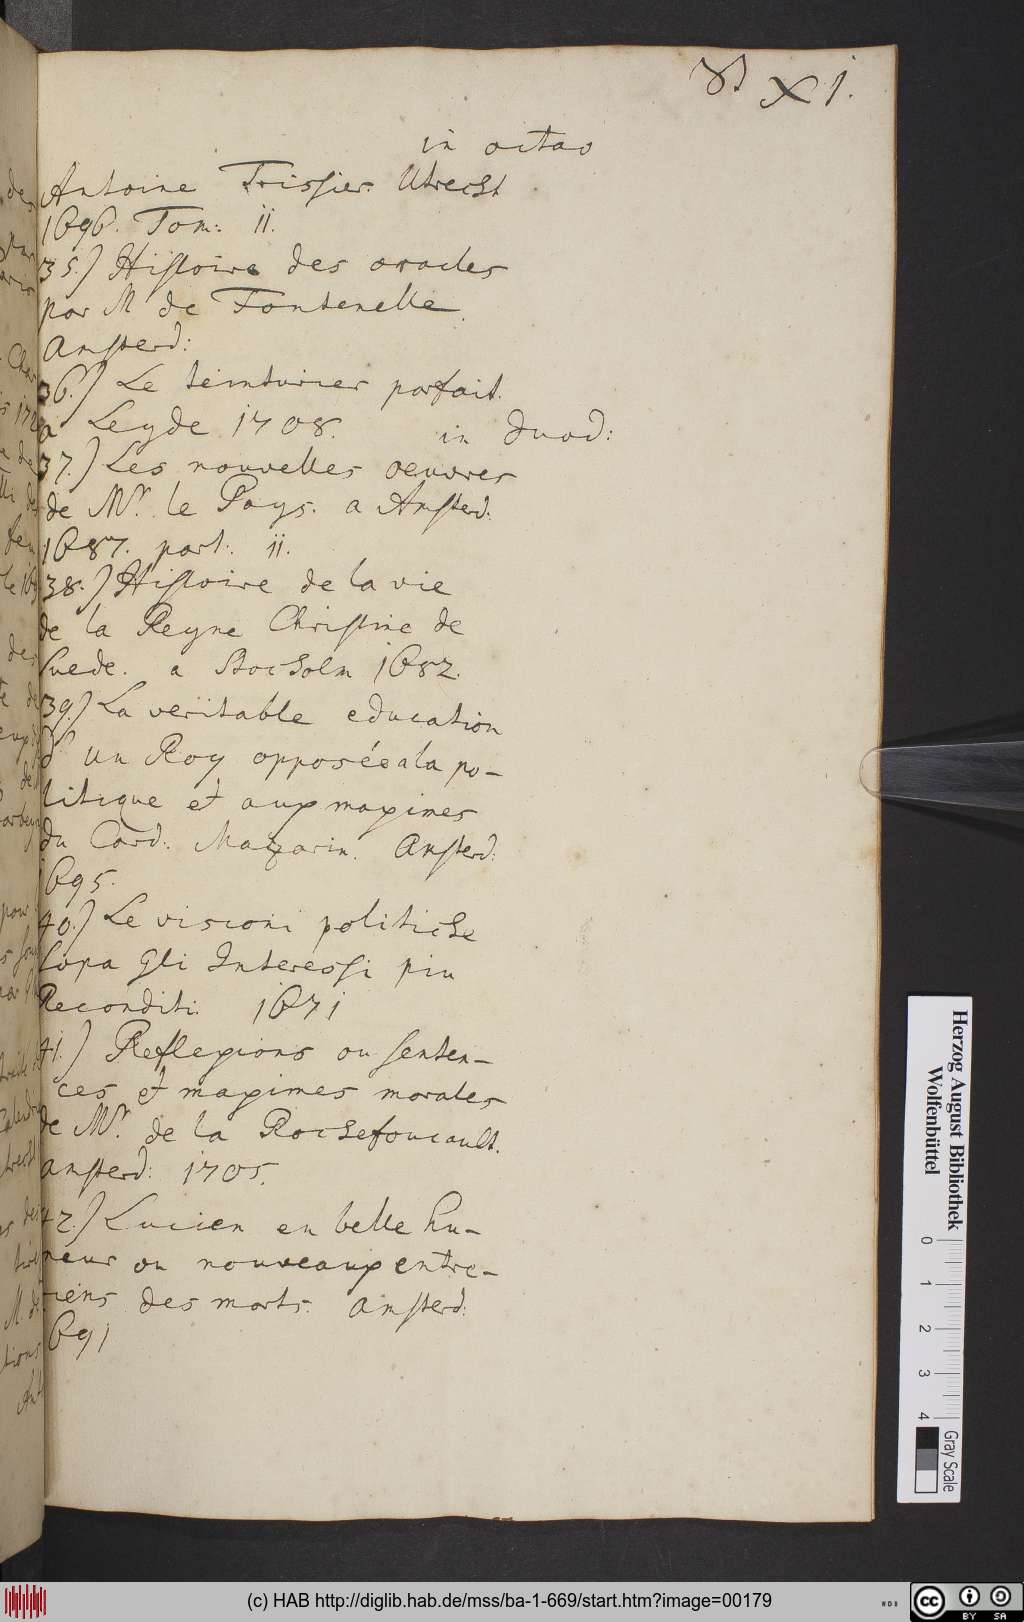 XI.
in octavo
Antoine Teissier. Utrecht
1696. Tom: II.
35.) Histoire des oracles
par M de Fontenelle.
Amsterd:
36.) Le teinturier parfait.
a Leyde 1708.
in duod:
37.) Les nouvelles oeuvres
de Mr. le Pays. a Amsterd:
1687. part: II.
38.) Histoire de la vie
de la Reyne Christine de
Suede. a Stocholm 1682.
39.) La veritable education
d'un Roy opposée a la po-
litique et aux maximes
du Card: Mazarin. Amsterd:
1695.
40.) Le visioni politiche
sopra gli Interessi piu
Reconditi. 1671
41.) Reflexions ou senten-
ces et maximes morales
de Mr. de la Rochefoucault.
amsterd: 1705.
42.) Lucien en belle hu-
meur ou nouveaux entre-
tiens des morts. amsterd:
1691
Herzog August Bibliothek
Wolfenbüttel
0 1 2 3 4
Gray Scale
(c) HAB http://diglib.hab.de/mss/ba-1-669/start.htm?image=00179
cc BY SA